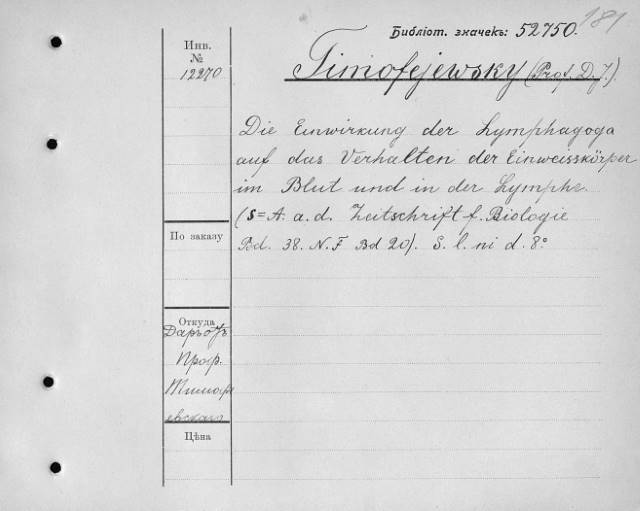 181
Библіот. значекъ: 52750.
Инв.
№
12270
Timofejewsky (Prof. D. J.).
Die Einwirkung der Lymphagoga
auf das Verhalten der Einweisskörper
im Blut und in der Lymphe
(S=A. a. d. Zeitschrift f. Biologie
Bd. 38. N. F Bd 20). S. l. ni d. 8°
По заказу
Откуда
Даръ отъ
Проф.
Тимоф
евскаго
Цѣна